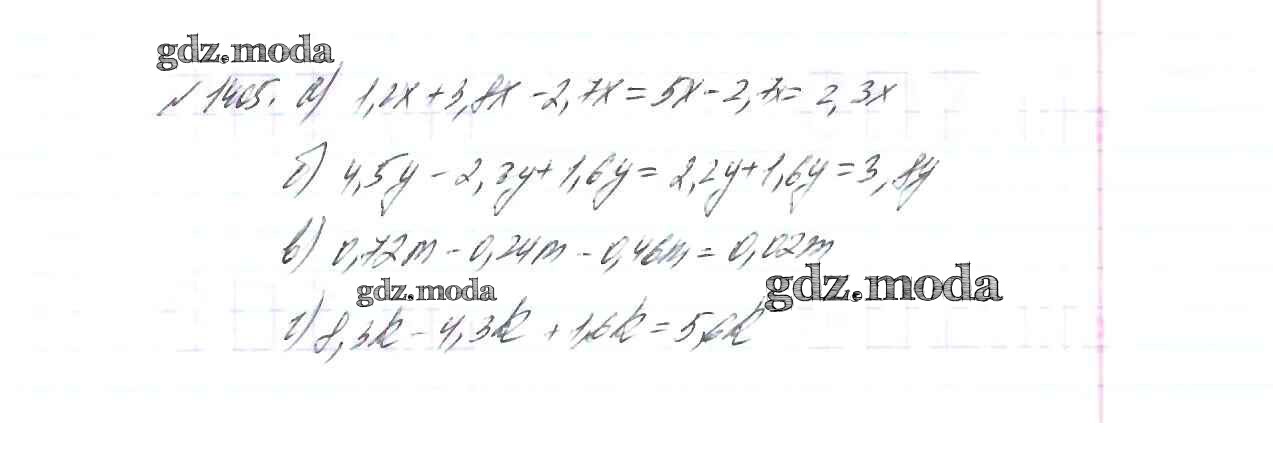 gdz.moda
№ 1405. а) 1,2x + 3,8x - 2,7x = 5x - 2,7x = 2,3x
б) 4,5y - 2,3y + 1,6y = 2,2y + 1,6y = 3,8y
в) 0,72m - 0,24m - 0,46m = 0,02m
gdz.moda
gdz.moda
г) 8,3k - 4,3k + 1,6k = 5,6k